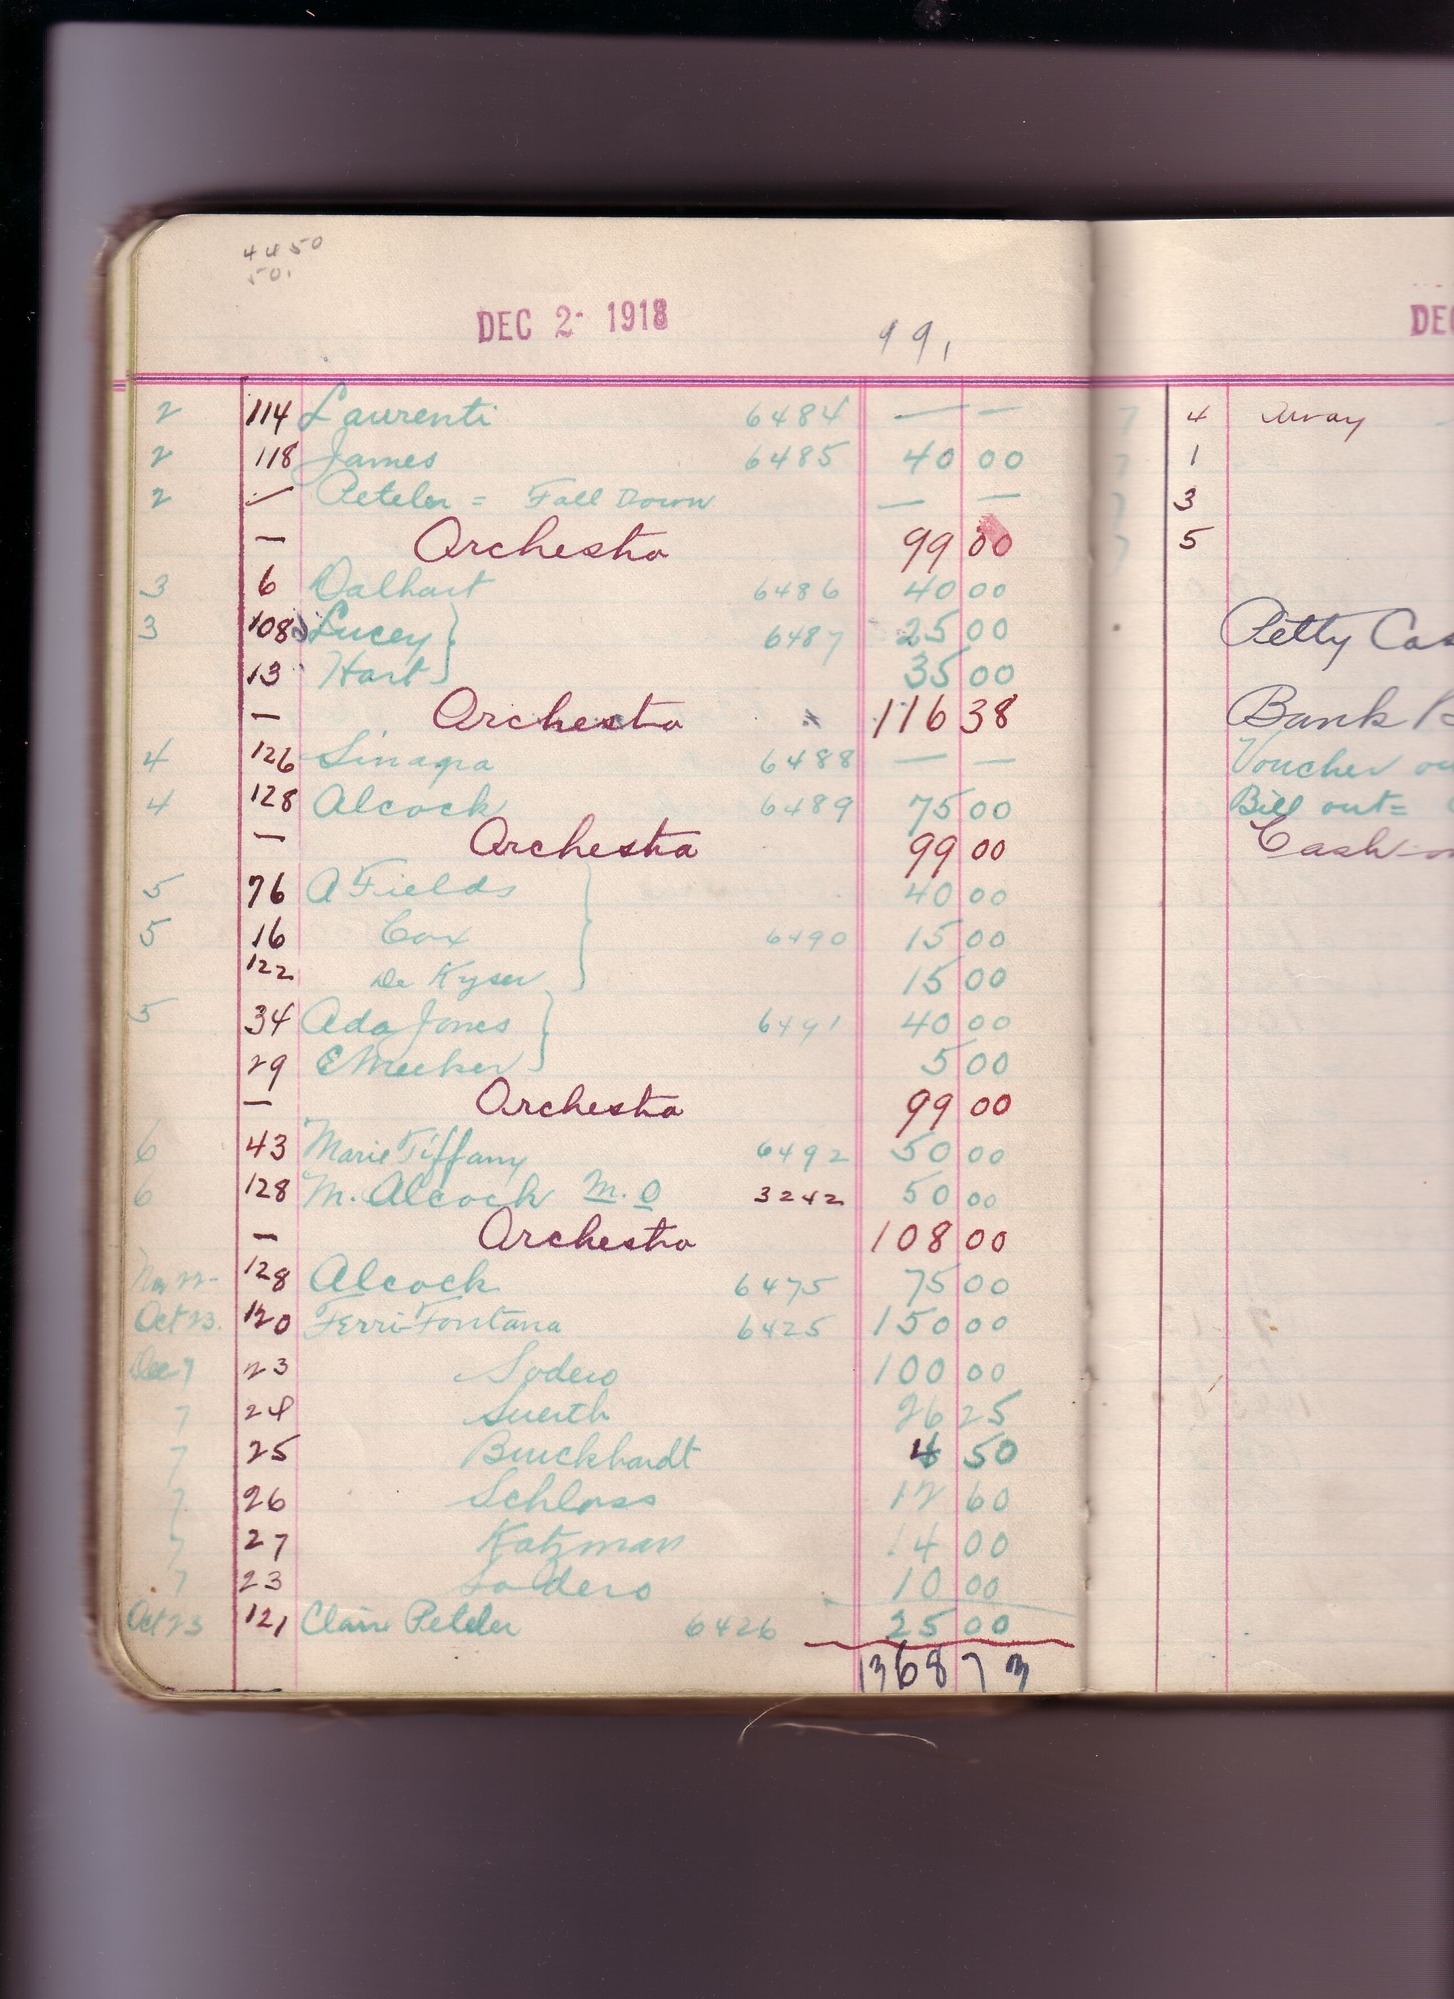 4450
50.
DEC 2 - 1918
99,
2 114 Laurenti 6484 — —
2 118 James 6485 40 00
2 ✓ Peteler = Fall Down — —
— Orchestra 99 00
3 6 Dalhart 6486 40 00
3 108 Lucey } 6487 25 00
13 Hart } 35 00
— Orchestra 116 38
4 126 Sinagra 6488 — —
4 128 Alcock 6489 75 00
— Orchestra 99 00
5 76 A Fields 40 00
5 16 Cox 6490 15 00
122 De Kyser 15 00
5 34 Ada Jones 6491 40 00
29 E Meeker 5 00
— Orchestra 99 00
6 43 Marie Tiffany 6492 50 00
6 128 M. Alcock M.O 3242 50 00
— Orchestra 108 00
Nov 22- 128 Alcock 6475 75 00
Oct 23. 120 Ferri-Fontana 6425 150 00
Dec 7 23 Sodero 100 00
7 24 Suerth 26 25
7 25 Burckhardt 4 50
7 26 Schloss 12 60
7 27 Katzman 14 00
7 23 Sodero 10 00
Oct 23 121 Claire Peteler 6426 25 00
1368 73
DE
7 4 Away
7 1
7 3
7 5
Petty Cas
Bank B
Voucher ou
Bill out =
Cash on